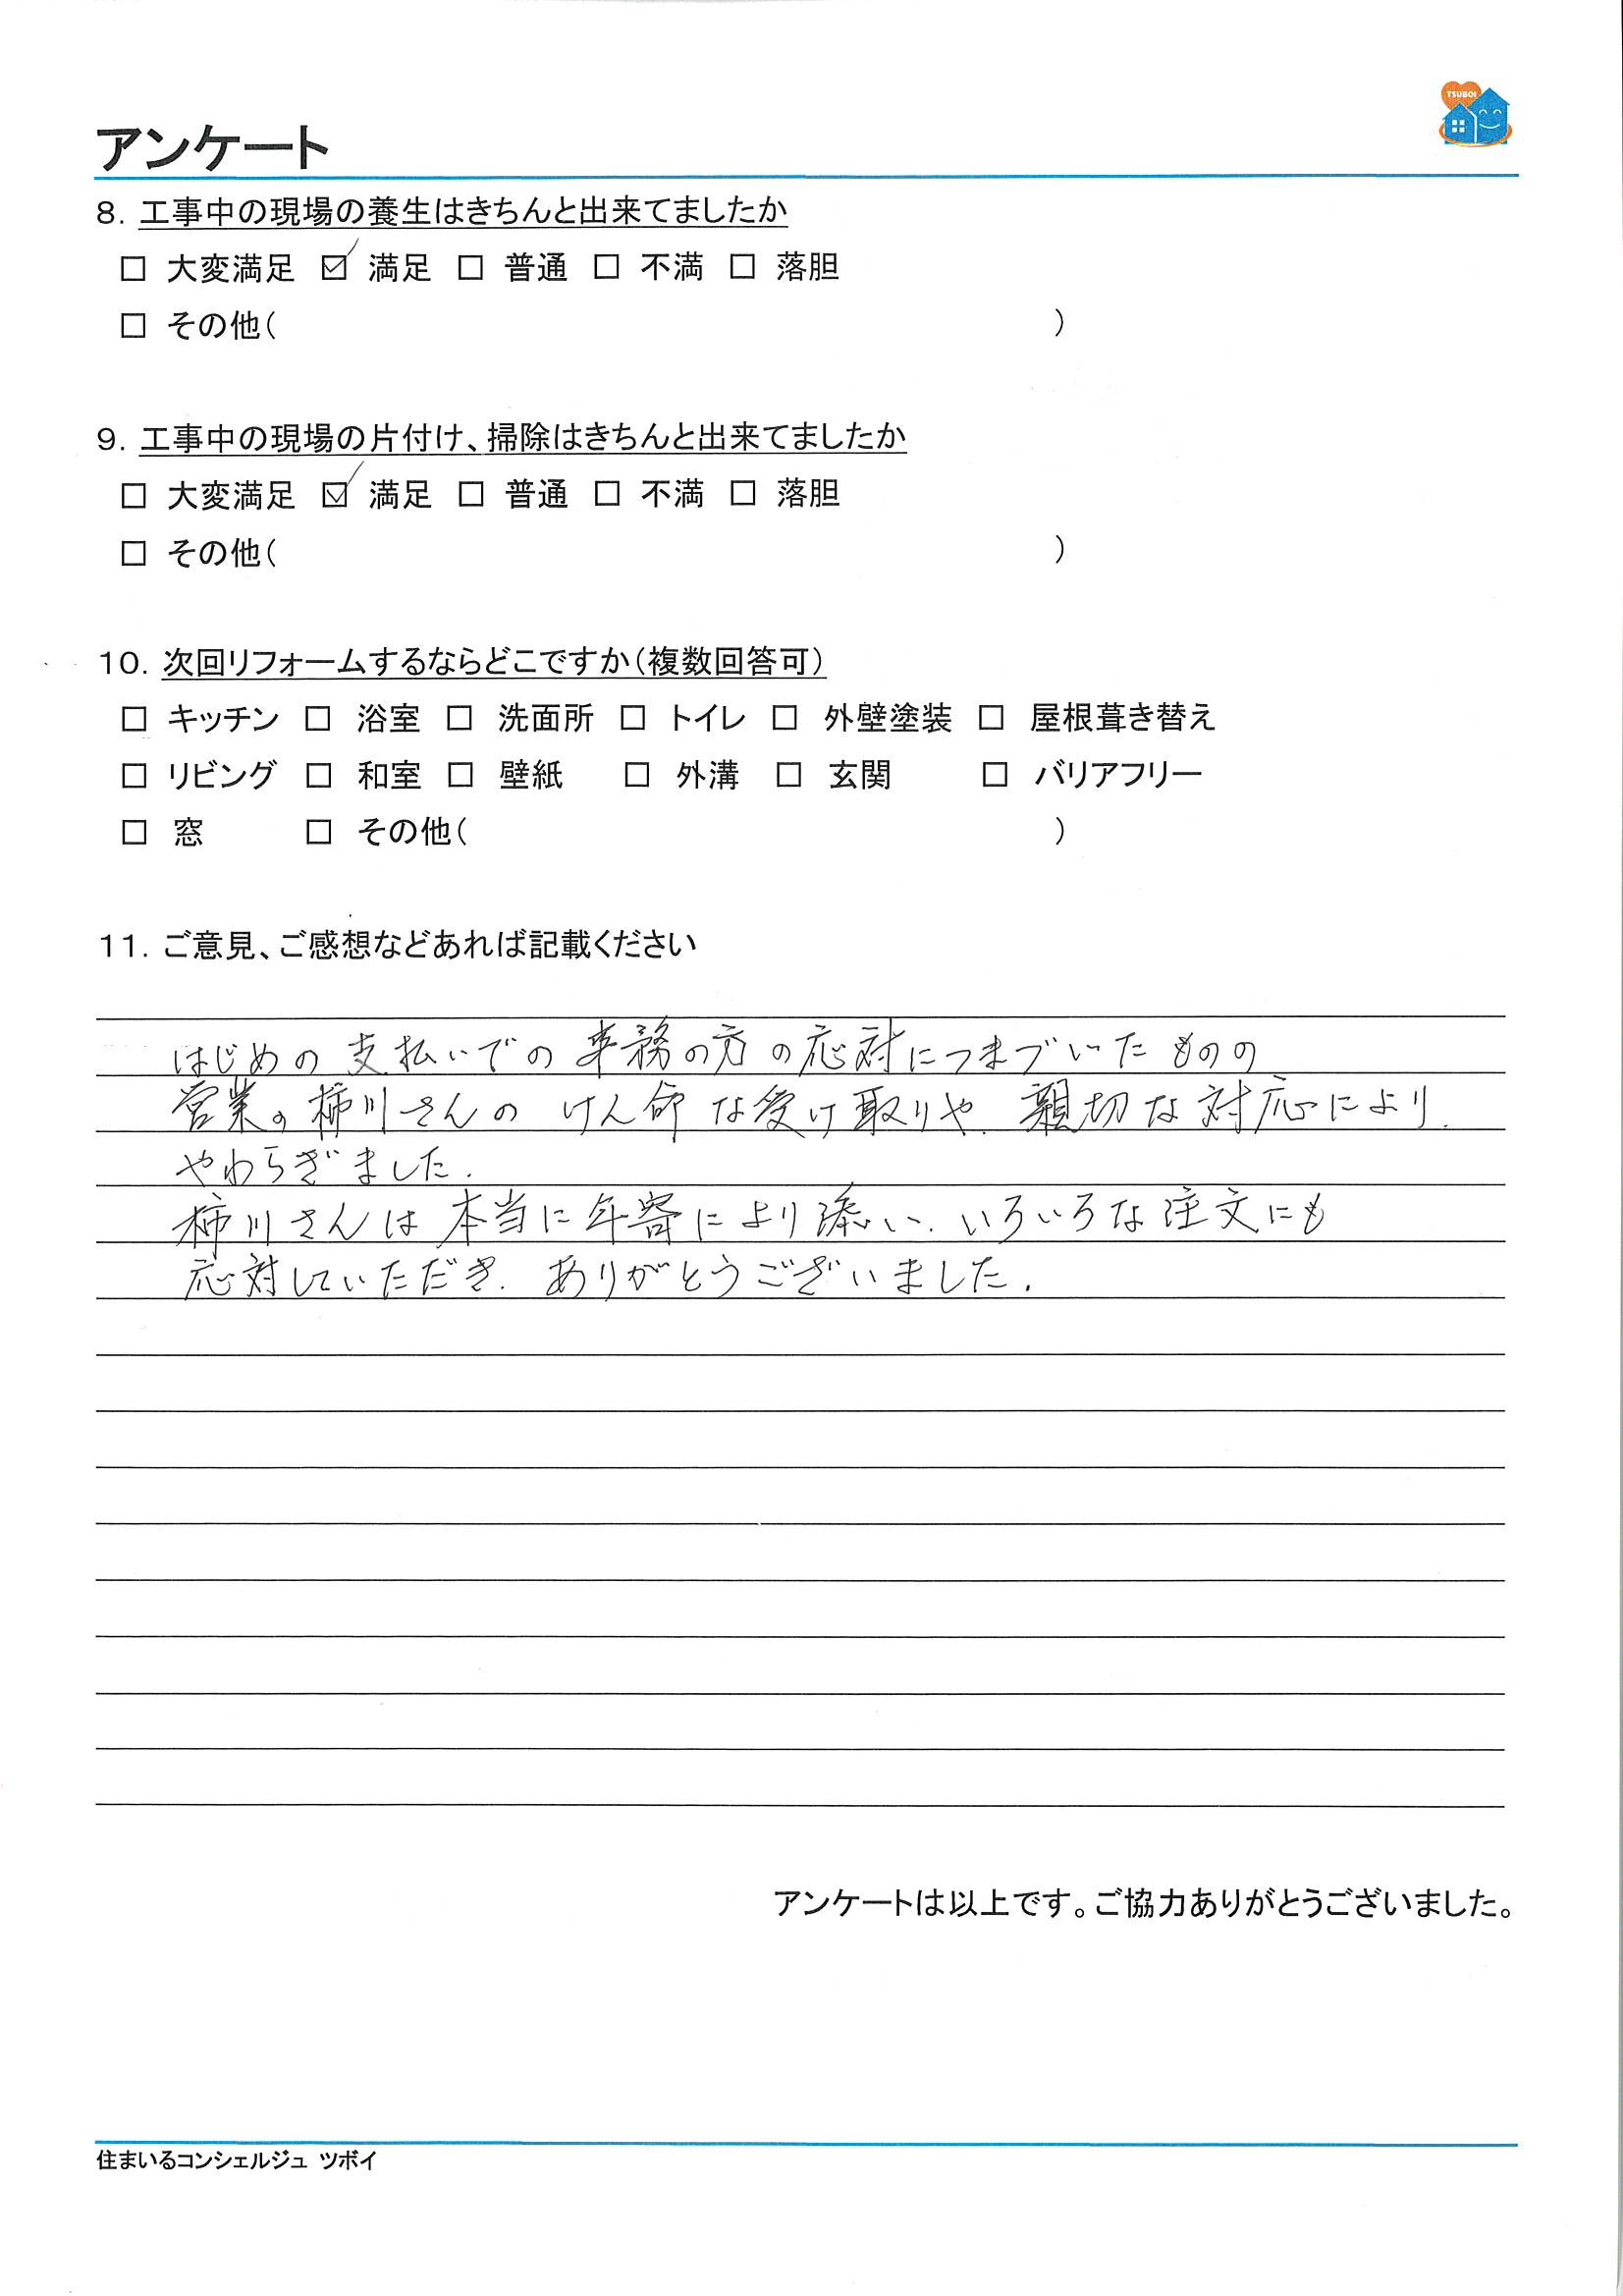 TSUBOI
アンケート
8. 工事中の現場の養生はきちんと出来てましたか
□ 大変満足 ☑ 満足 □ 普通 □ 不満 □ 落胆
□ その他( )
9. 工事中の現場の片付け、掃除はきちんと出来てましたか
□ 大変満足 ☑ 満足 □ 普通 □ 不満 □ 落胆
□ その他( )
10. 次回リフォームするならどこですか(複数回答可)
□ キッチン □ 浴室 □ 洗面所 □ トイレ □ 外壁塗装 □ 屋根葺き替え
□ リビング □ 和室 □ 壁紙 □ 外溝 □ 玄関 □ バリアフリー
□ 窓 □ その他( )
11. ご意見、ご感想などあれば記載ください
はじめの支払いでの事務の方の応対につまづいたものの
営業の柿川さんのけん命な受け取りや、親切な対応により、
やわらぎました。
柿川さんは本当に年寄により添い、いろいろな注文にも
応対していただき、ありがとうございました。
アンケートは以上です。ご協力ありがとうございました。
住まいるコンシェルジュ ツボイ